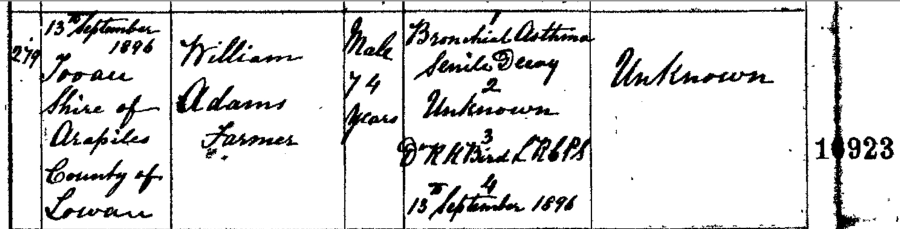 279
13th September
1896
Tooan
Shire of
Arapiles
County of
Lowan
William
Adams
Farmer
Male
74
Years
1
Bronchial Asthma
Senile Decay
2
Unknown
3
Dr R H Bird LRCPS
4
13th September 1896
Unknown
10923